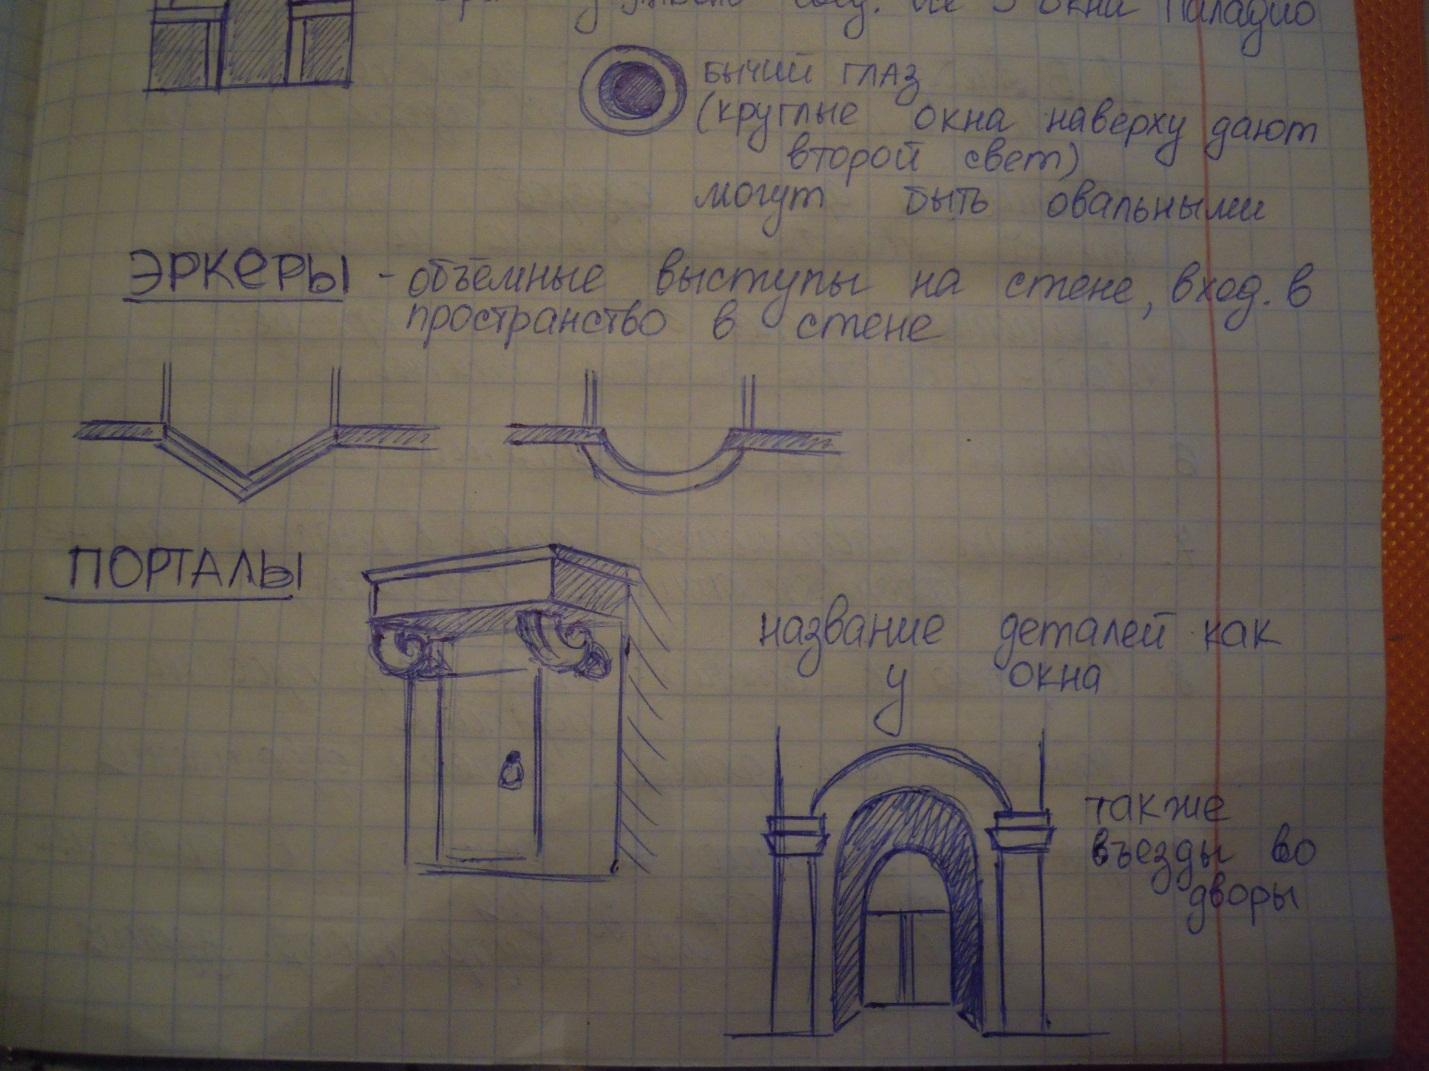 окна Паладио
БЫЧИЙ ГЛАЗ
(круглые окна наверху дают
второй свет)
могут быть овальными
ЭРКЕРЫ - объёмные выступы на стене, вход. в
пространство в стене
ПОРТАЛЫ
название деталей как
у окна
также
въезды во
дворы